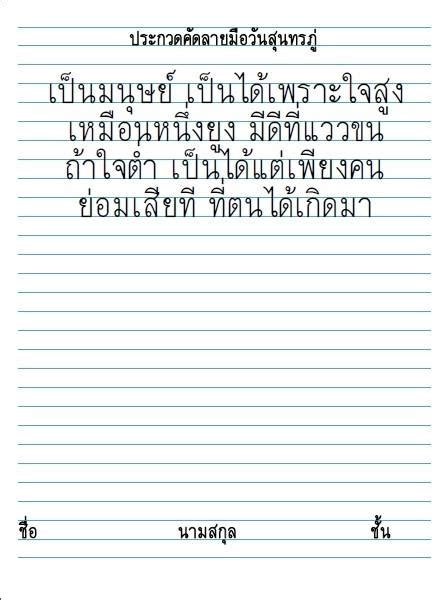 ประกวดคัดลายมือวันสุนทรภู่
เป็นมนุษย์ เป็นได้เพราะใจสูง
เหมือนหนึ่งยูง มีดีที่แววขน
ถ้าใจต่ำ เป็นได้แต่เพียงคน
ย่อมเสียที ที่ตนได้เกิดมา
ชื่อ นามสกุล ชั้น